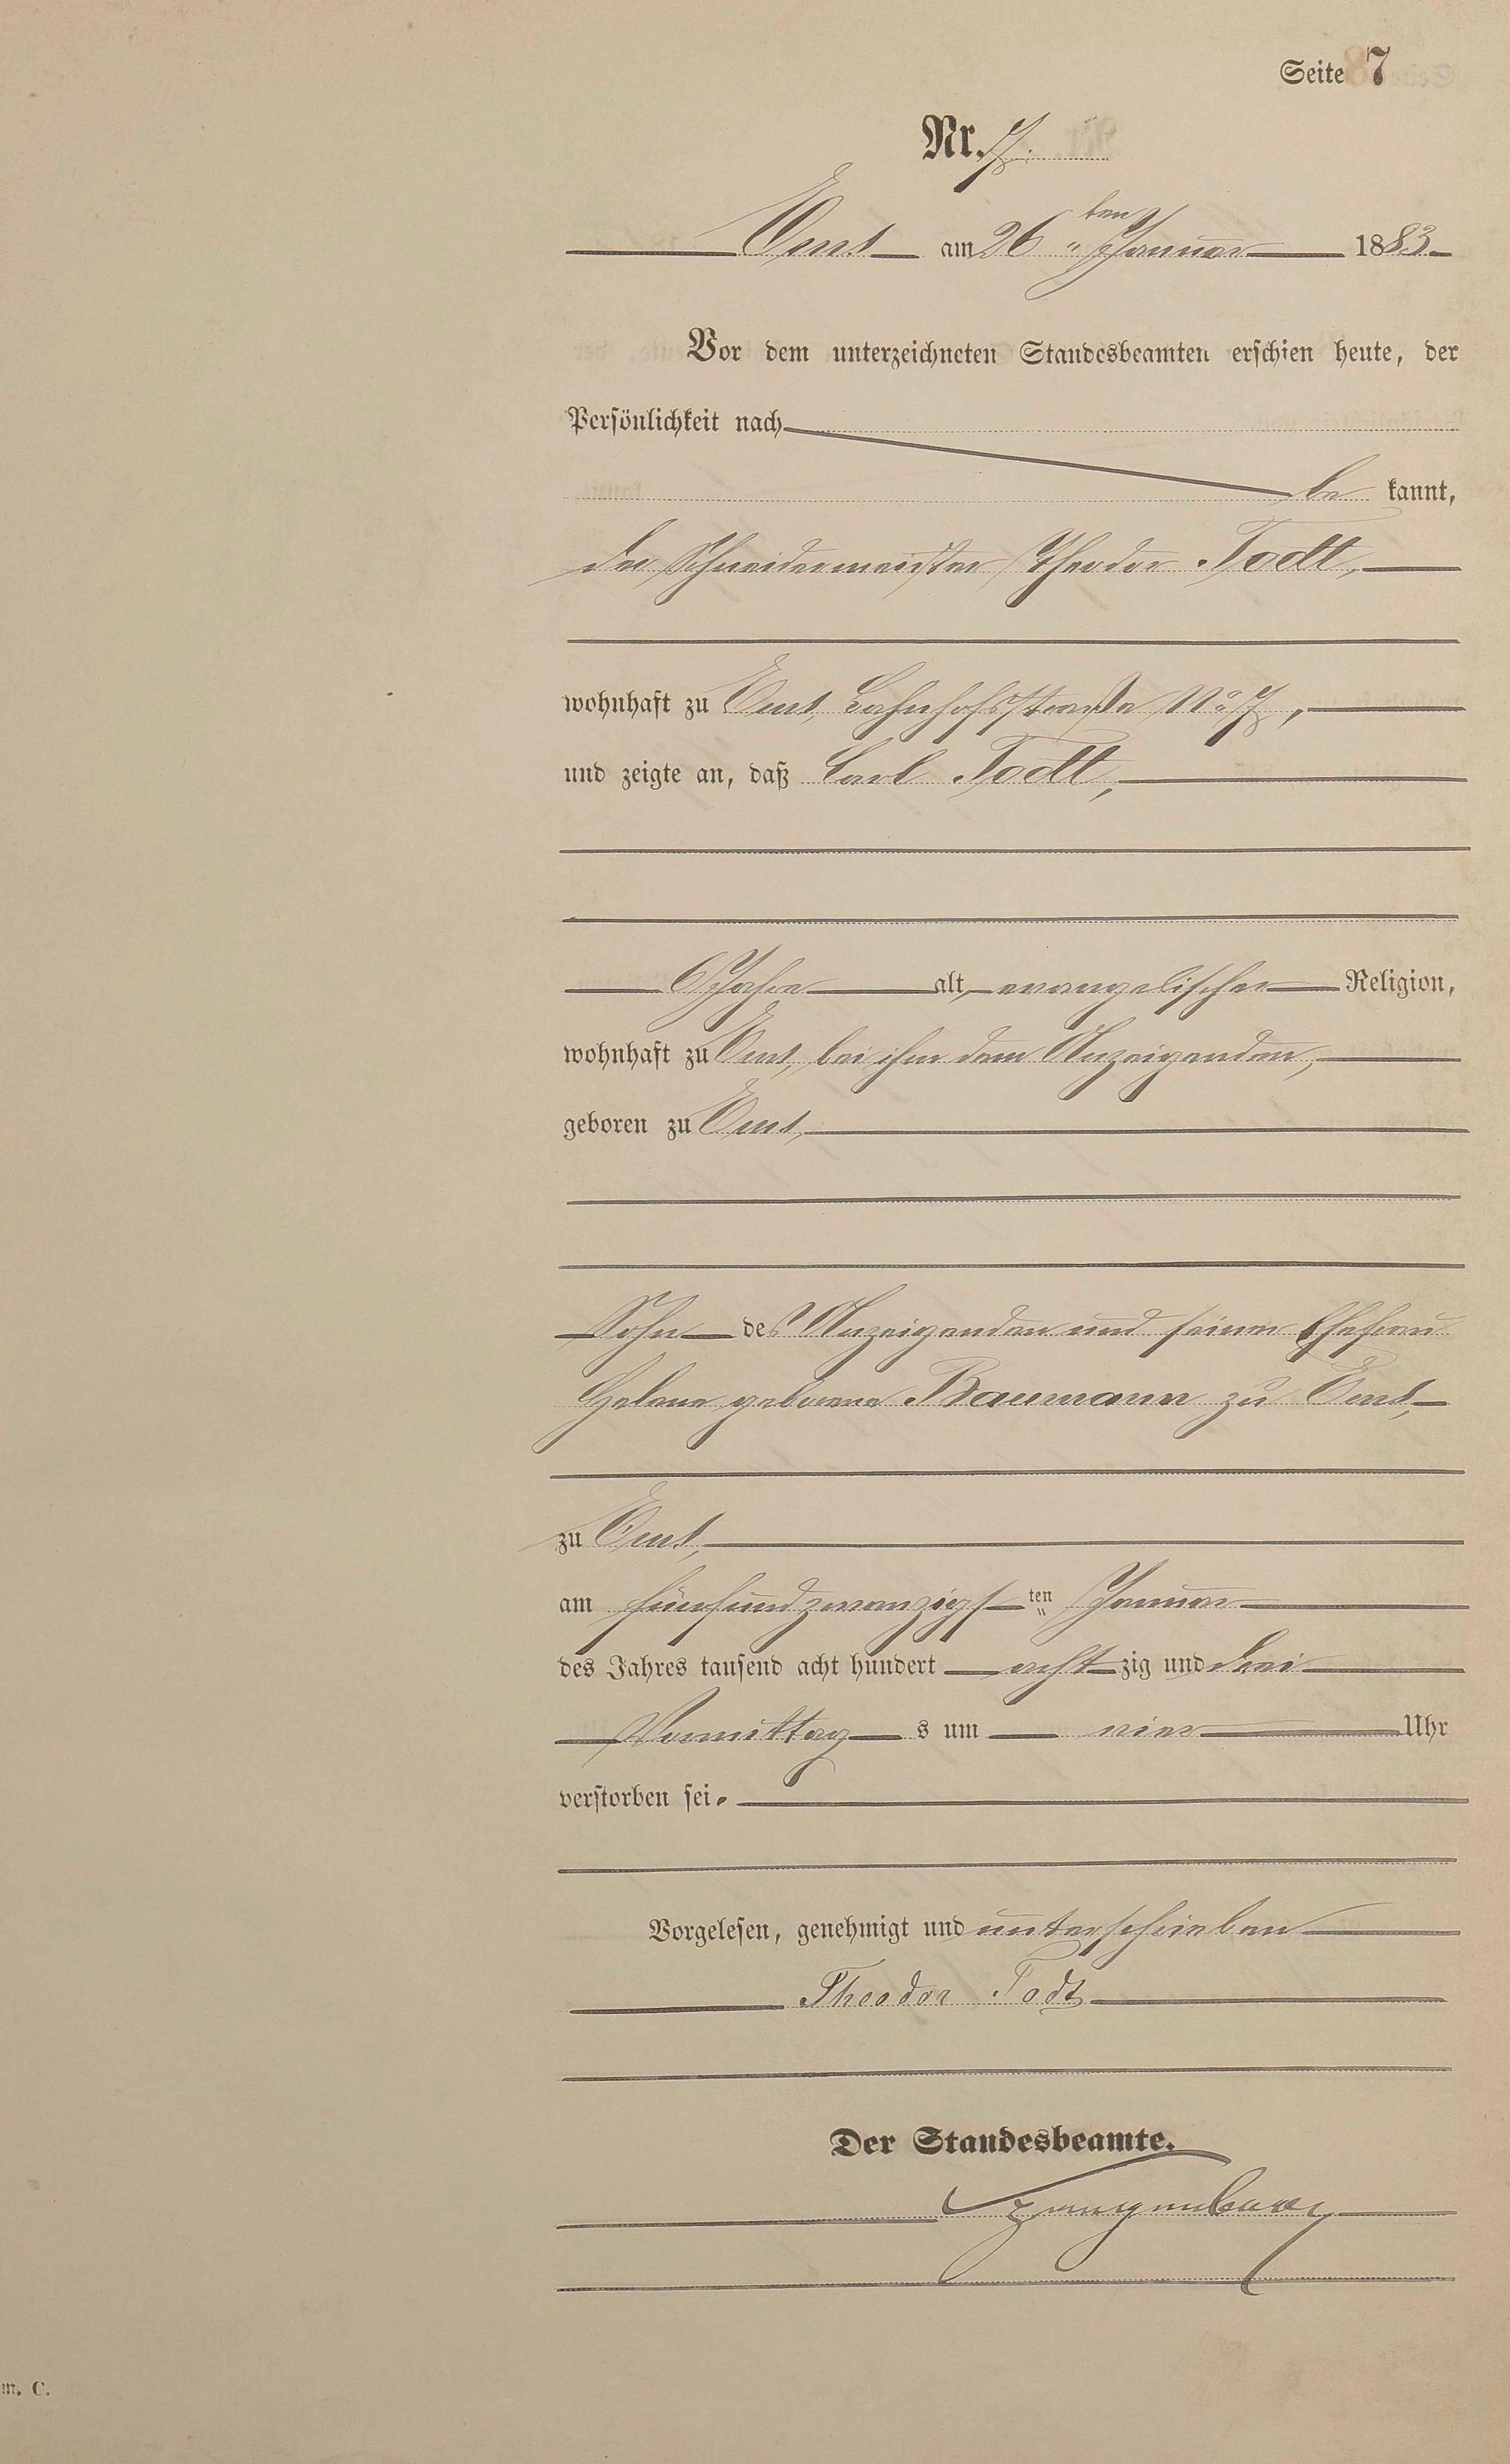 Seite 7
Nr. 7.
Ems am 26ten Januar 1883
Vor dem unterzeichneten Standesbeamten erschien heute, der
Persönlichkeit nach
be kannt,
der Schneidermeister Theodor Todt,
wohnhaft zu Ems, Bahnhofsstraße No 7,
und zeigte an, daß Carl Todt,
6 Jahre alt, evangelischer Religion,
wohnhaft zu Ems, bei ihm dem Anzeigenden,
geboren zu Ems,
Sohn des Anzeigenden und seiner Ehefrau
Helene geborene Baumann zu Ems,
zu Ems,
am fünfundzwanzigsten Januar
des Jahres tausend acht hundert achtzig und drei
Vormittags um vier Uhr
verstorben sei.
Vorgelesen, genehmigt und unterschrieben
Theodor Todt
Der Standesbeamte.
m. C.